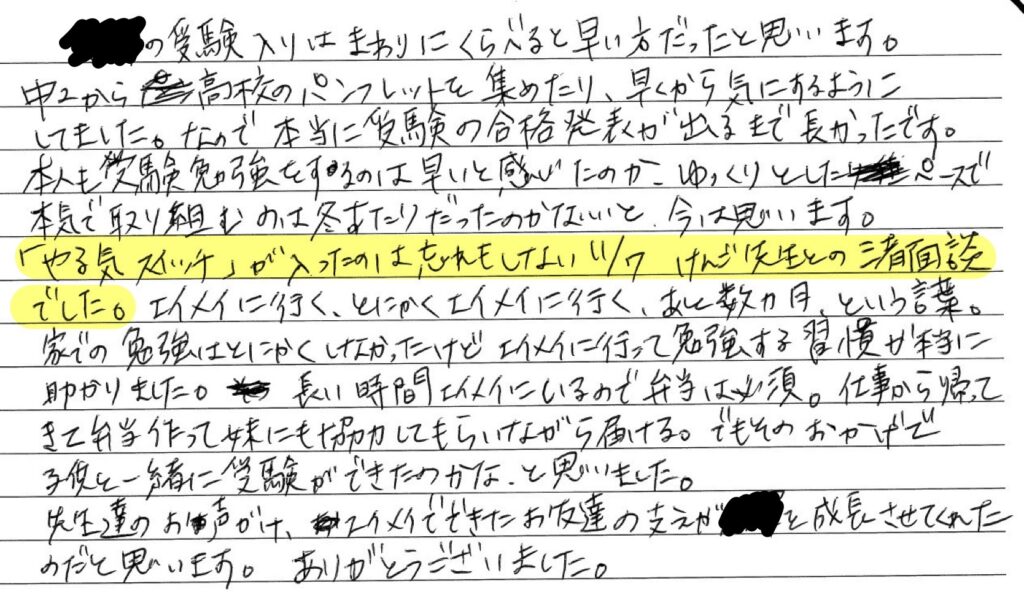 の受験入りはまわりにくらべると早い方だったと思います。
中2から高校のパンフレットを集めたり、早くから気にするように
してました。なので本当に受験の合格発表が出るまで長かったです。
本人も受験勉強をするのは早いと感じたのか、ゆっくりとしたペースで
本気で取り組むのは冬あたりだったのかないと、今は思います。
「やる気スイッチ」が入ったのは忘れもしない11/7 けんご先生との三者面談
でした。エイメイに行く、とにかくエイメイに行く、あと数カ月、という言葉。
家での勉強はとにかくしなかったけどエイメイに行って勉強する習慣が本当に
助かりました。長い時間エイメイにいるので弁当は必須。仕事から帰って
きて弁当作って妹にも協力してもらいながら届ける。でもそのおかげで
子供と一緒に受験ができたのかな、と思いました。
先生達のお声がけ、エイメイでできたお友達の支えが と成長させてくれた
のだと思います。ありがとうございました。